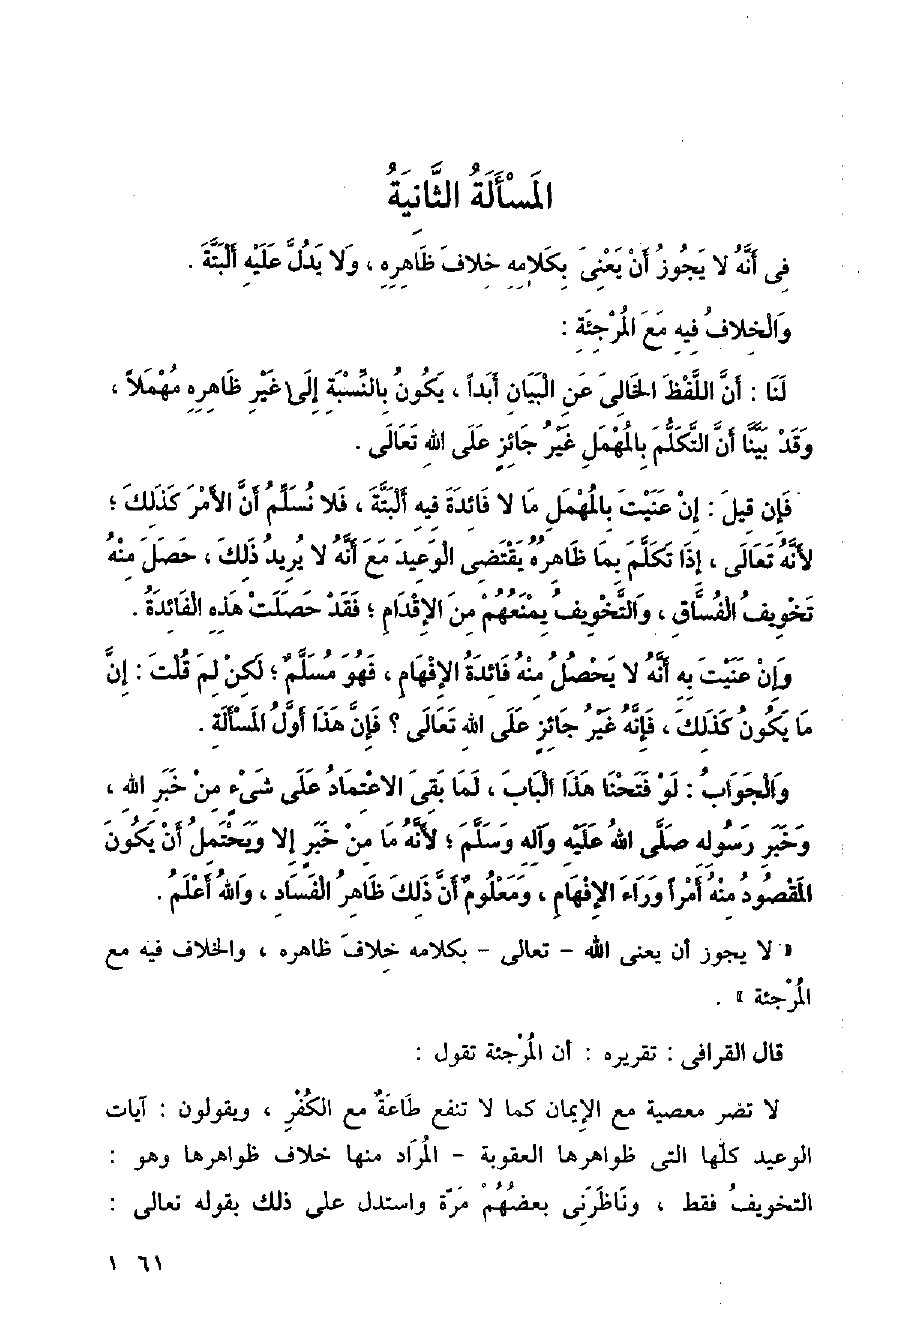 المَسْأَلَةُ الثَّانِيَةُ
فِى أَنَّهُ لا يَجُوزُ أَنْ يَعْنِىَ بِكَلامِهِ خِلافَ ظَاهِرِهِ ، وَلا يَدُلَّ عَلَيْهِ أَلْبَتَّةَ .
وَالْخِلافُ فِيهِ مَعَ المُرْجِئَةِ :
لَنَا : أَنَّ اللَّفْظَ الخَالِىَ عَنِ البَيَانِ أَبَداً ، يَكُونُ بِالنِّسْبَةِ إِلَى غَيْرِ ظَاهِرِهِ مُهْمَلاً ،
وَقَدْ بَيَّنَّا أَنَّ التَّكَلُّمَ بِالمُهْمَلِ غَيْرُ جَائِزٍ عَلَى اللهِ تَعَالَى .
فَإِن قِيلَ : إِنْ عَنَيْتَ بِالْمُهْمَلِ مَا لا فَائِدَةَ فِيهِ أَلْبَتَّةَ ، فَلا نُسَلِّمُ أَنَّ الأَمْرَ كَذَلِكَ ؛
لأَنَّهُ تَعَالَى ، إِذَا تَكَلَّمَ بِمَا ظَاهِرُهُ يَقْتَضِى الوَعِيدَ مَعَ أَنَّهُ لا يُرِيدُ ذَلِكَ ، حَصَلَ مِنْهُ
تَخْوِيفُ الفُسَّاقِ ، وَالتَّخْوِيفُ يَمْنَعُهُمْ مِنَ الإِقْدَامِ ؛ فَقَدْ حَصَلَتْ هَذِهِ الْفَائِدَةُ .
وَإِنْ عَنَيْتَ بِهِ أَنَّهُ لا يَحْصُلُ مِنْهُ فَائِدَةُ الإِفْهَامِ ، فَهُوَ مُسَلَّمٌ ؛ لَكِنْ لِمَ قُلْتَ : إِنَّ
مَا يَكُونُ كَذَلِكَ ، فَإِنَّهُ غَيْرُ جَائِزٍ عَلَى اللهِ تَعَالَى ؟ فَإِنَّ هَذَا أَوَّلُ المَسْأَلَةِ .
وَالْجَوَابُ : لَوْ فَتَحْنَا هَذَا الْبَابَ ، لَمَا بَقِىَ الاعْتِمَادُ عَلَى شَىْءٍ مِنْ خَبَرِ اللهِ ،
وَخَبَرِ رَسُولِهِ صَلَّى اللهُ عَلَيْهِ وَآلِهِ وَسَلَّمَ ؛ لأَنَّهُ مَا مِنْ خَبَرٍ إِلا وَيَحْتَمِلُ أَنْ يَكُونَ
المَقْصُودُ مِنْهُ أَمْراً وَرَاءَ الإِفْهَامِ ، وَمَعْلُومٌ أَنَّ ذَلِكَ ظَاهِرُ الفَسَادِ ، وَاللهُ أَعْلَمُ .
« لا يجوز أن يعنى الله – تعالى – بكلامه خلافَ ظاهره ، والخلاف فيه مع
المُرْجئة » .
قال القرافى : تقريره : أن المُرْجئة تقول :
لا تضر معصية مع الإيمان كما لا تنفع طَاعَةٌ مع الكُفْرِ ، ويقولون : آيات
الوعيد كلّها التى ظواهرها العقوبة – المُرَاد منها خلاف ظواهرها وهو :
التخويفُ فقط ، ونَاظَرَنِى بعضُهُمْ مرّة واستدل على ذلك بقوله تعالى :
١٠٦١